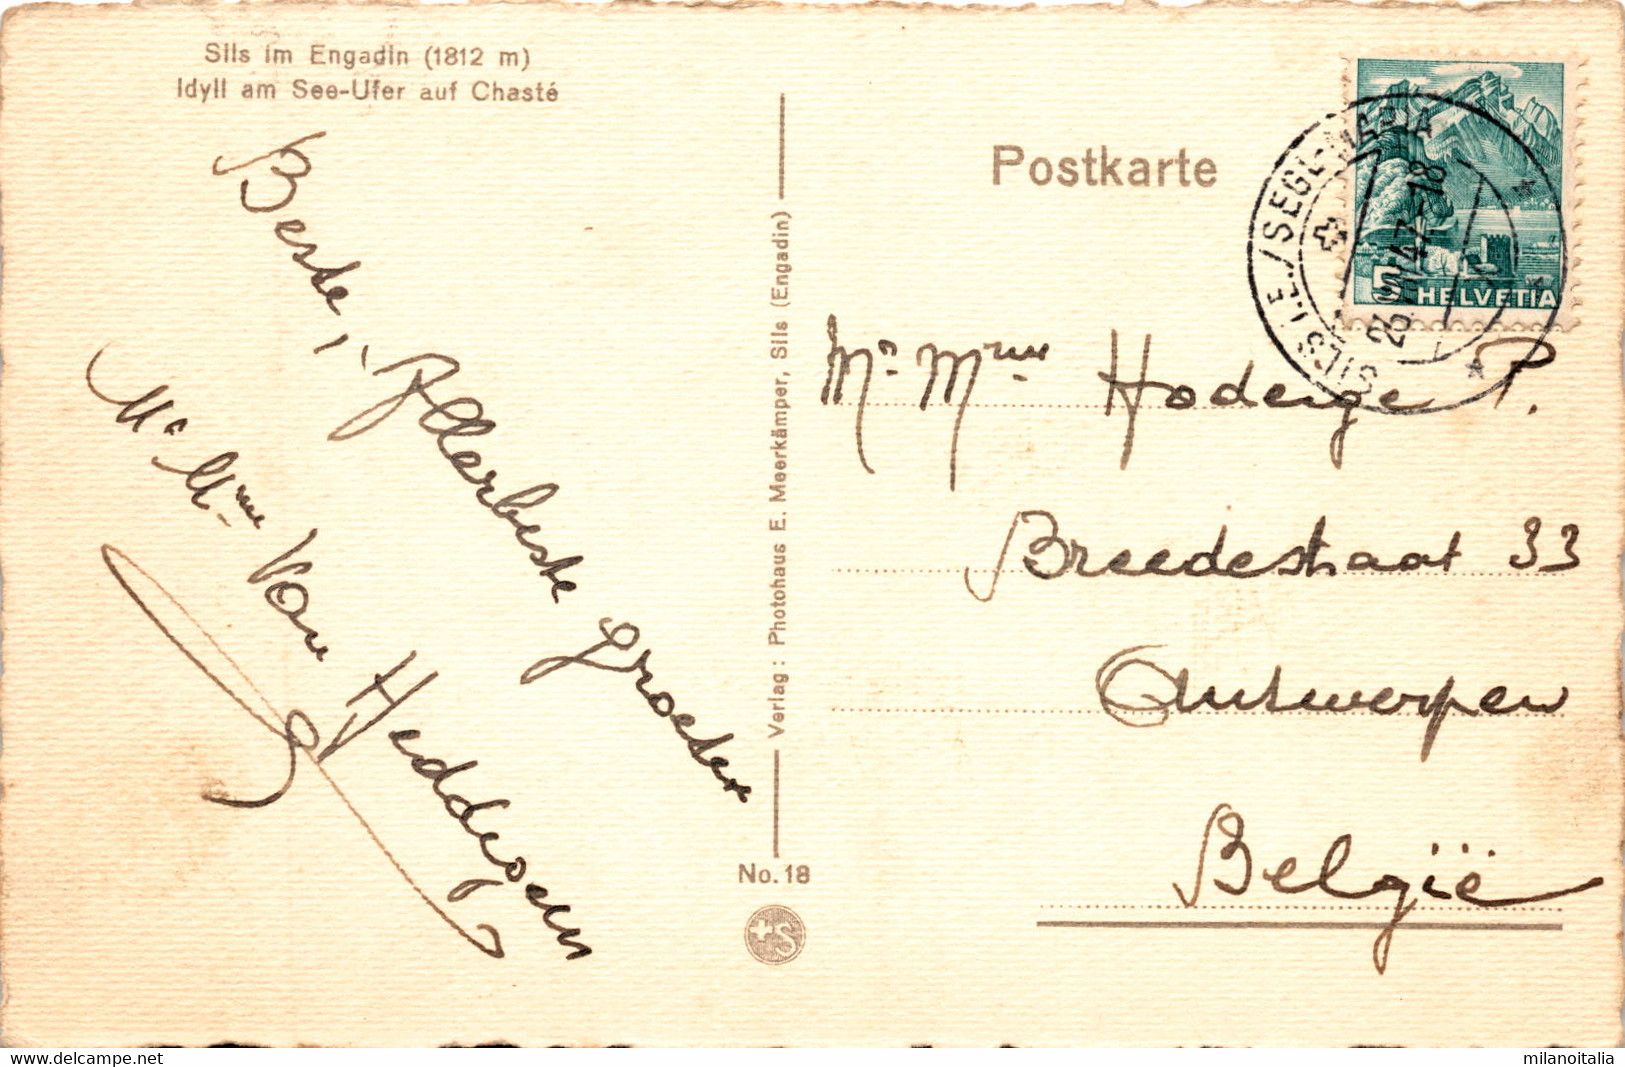 Sils im Engadin (1812 m)
Idyll am See-Ufer auf Chasté
Beste,
Allerbeste Groeten
Mr Mme Van Heddegem
Verlag: Photohaus E. Meerkämper, Sils (Engadin)
No. 18
+S
Postkarte
HELVETIA
5
SILS i. E./SEGL-MARIA
47-18
Mr Mme Hoderge P.
Breedestraat 33
Antwerpen
België
www.delcampe.net
milanoitalia